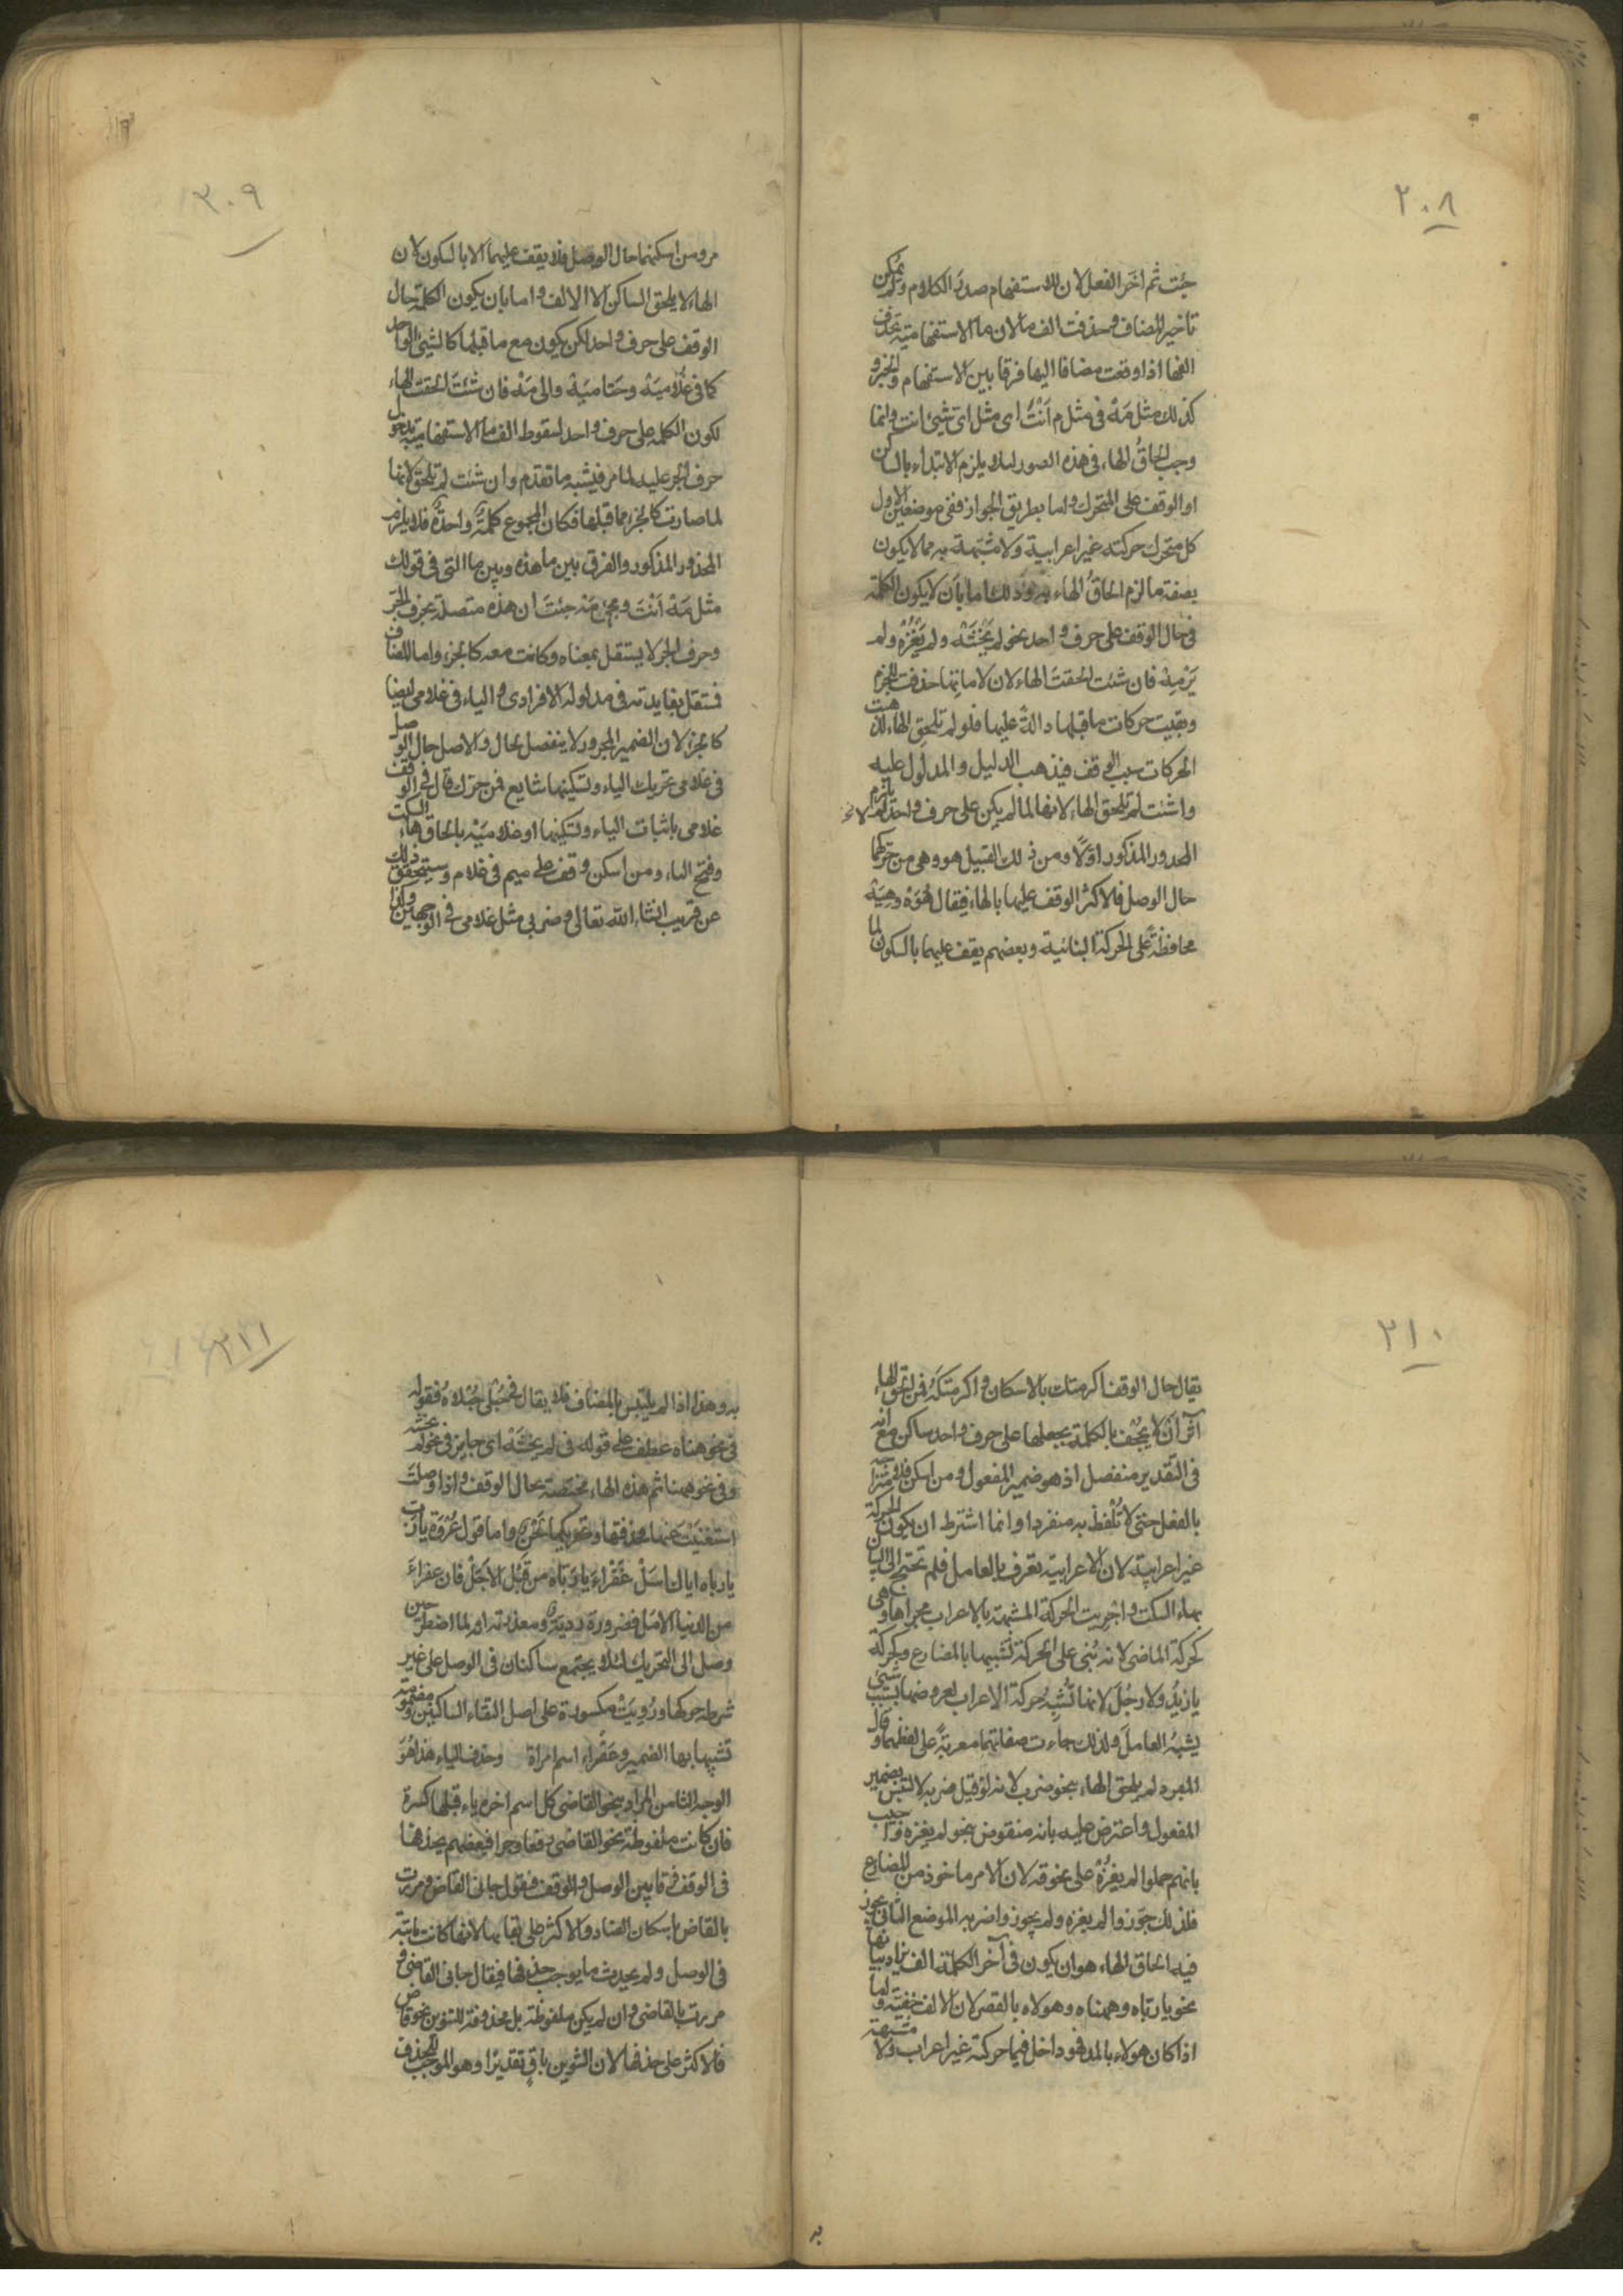 ٢٠٨
جئت ثم اخر الفعل لان للاستفهام صدر الكلام ولم يمكن
تاخير المضاف وحذفت الف ما لان ما الاستفهامية يحذف
الفها اذا وقعت مضافا اليها فرقا بين الاستفهام والخبر و
كذلك مثل مَهْ فى مثل م اَنْتَ اى مثل اى شئ انت وانما
وجب الحاقُ الهاء فى هذه الصور لئلا يلزم الابتداء بالساكن
او الوقف على المتحرك واما بطريق الجواز ففى موضعين الاول
كل متحرك حركته غير اعرابية ولا مشبهة به مما لا يكون
بصفة ما لزم الحاقُ الهاء به وذلك اما بأن لا يكون الكلمة
فى حال الوقف على حرف واحد نحو لم يَخْشَهْ ولم يَغْزُهْ ولم
يَرْمِهْ فان شئت الحقتَ الهاء لان لاماتها حذفت للجزم
وبقيت حركات ما قبلها دالةً عليها فلو لم تلحق الهاء لذهبت
الحركات بسبب الوقف فيذهب الدليل والمدلول عليه
وان شئت لم تلحق الهاء لانها لما لم يكن على حرف واحد لم يلزم
المحذور المذكور اوّلًا ومن ذلك القبيل هو وهى من حركهما
حال الوصل فالاكثر الوقف عليهما بالهاء فيقال هُوَهْ وهِيَهْ
محافظةً على الحركة البنائية وبعضهم يقف عليهما بالسكون لما
٣٠٩
مر ومن اسكنهما حال الوصل فلا يقف عليهما الا بالسكون لان
الهاء لا يلحق الساكن الا الالف واما بان يكون الكلمة حال
الوقف على حرف واحد لكن يكون مع ما قبلها كالشئ الواحد
كما فى غلاميَهْ وحتّامَهْ والى مَهْ فان شئت الحقت الهاء
لكون الكلمة على حرف واحد لسقوط الف ما الاستفهامية بدخول
حرف الجر عليه لما مر فيشبه ما تقدم وان شئت لم تلحق لانها
لما صارت كالجزء مما قبلها فكان المجموع كلمةً واحدةً فلا يلزم
المحذور المذكور والفرق بين ما هذه وبين ما التى فى قولك
مثل مَهْ اَنْتَ ومجئ مَهْ جئتَ ان هذه متصلة بحرف الجر
وحرف الجر لا يستقل بمعناه وكانت معه كالجزء واما المضاف
فمستقل بفايدته فى مدلوله الافرادى والياء فى غلامى ايضا
كالجزء لان الضمير المجرور لا ينفصل بحال والاصل حال الوصل
فى غلامى تحريك الياء وتسكينها شايع فمن حرك قال فى الوقف
غلامى باثبات الياء وتسكينها او غلاميَهْ بالحاق هاء السكت
وفتح الياء ومن اسكن وقف على ميم فى غلام وسيتحقق ذلك
عن قريب انشاء الله تعالى وضربى مثل غلامى فى الوجهين ولذا
٢١٠
يقال حال الوقف اكرمتك بالاسكان واكرمتكَهْ فمن الحق الهاء
آثر ان لا يجحف بالكلمة بجعلها على حرف واحد ساكن مع انه
فى التقدير منفصل اذ هو ضمير المفعول ومن اسكن فلامتزاجه
بالفعل حتى لا تُلْفظ به منفردا وانما اشترط ان يكون الحركة
غير اعرابية لان الاعرابية تعرف بالعامل فلم تحتج الى البيان
بهاء السكت واجريت الحركة المشبهة بالاعراب مجراها وهى
كحركة الماضى لانه بُنى على الحركة تشبيها بالمضارع وكحركة
يا زيدُ ولا رجُلَ لانها تُشْبِهُ حركة الاعراب لعروضها بسبب شئ
يشبهُ العاملَ ولذلك جاءت صفاتهما معربةً على لفظهما وقال
المبرد لم يلحق الهاء بنحو ضرب لانه لو قيل ضربه لالتبس بضمير
المفعول واعترض عليه بانه منقوض بنحو لم يغزه واجيب
بانهم حملوا لم يغزُهْ على نحو قه لان الامر ما خوذ من المضارع
فلذلك جوزوا لم يغزه ولم يجوزوا ضربه الموضع الثانى يجوز
فيه الحاق الهاء هو ان يكون فى آخر الكلمة الف يراد بيانها
نحو يا ربّاه وههناه وهولاه بالقصر لان الالف خفية واما
اذا كان هولاء بالمد فهو داخل فيما حركته غير اعراب ولا مشبهة
٢١١
به وهذا اذا لم يلتبس بالمضاف فلا يقال فى حُبْلى حُبْلاهُ فقوله
فى نحو هناه عطف على قوله فى لم يخشَهْ اى جايز فى نحو لم يخشه
وفى نحو ههنا ثم هذه الهاء مختصة بحال الوقف واذا وصلت
استغنيت عنها فحذفتها وتحريكها لحن واما قول عُرْوَة يا رب
يا رباه اياك اسَلْ عَفْراءَ يا رَبّاه من قَبْل الاَجَلْ فان عفراءَ
من الدنيا الامَل فضرورة رديَّة ومعذرته انه لما اضطر حين
وصل الى التحريك لئلا يجتمع ساكنان فى الوصل على غير
شرطه حركها ورُوِيَتْ مكسورة على اصل التقاء الساكنين ومضمومة
تشبيها بها الضمير وعَفْراء اسم امراة وحذف الياء هذا هُوَ
الوجه الثامن المراد بنحو القاضى كل اسم اخره ياء قبلها كسرة
فان كانت ملفوظة نحو القاضى رفعا وجرا فبعضهم يحذفها
فى الوقف فرقا بين الوصل والوقف فيقول جانى القاض ومررت
بالقاض باسكان الضاد والاكثر على بقايها لانها كانت ثابتة
فى الوصل ولم يحدث ما يوجب حذفها فيقال جانى القاضى و
مررت بالقاضى وان لم يكن ملفوظة بل محذوفة للتنوين نحو قاض
فالاكثر على حذفها لان التنوين باقٍ تقديرًا وهو الموجب للحذف